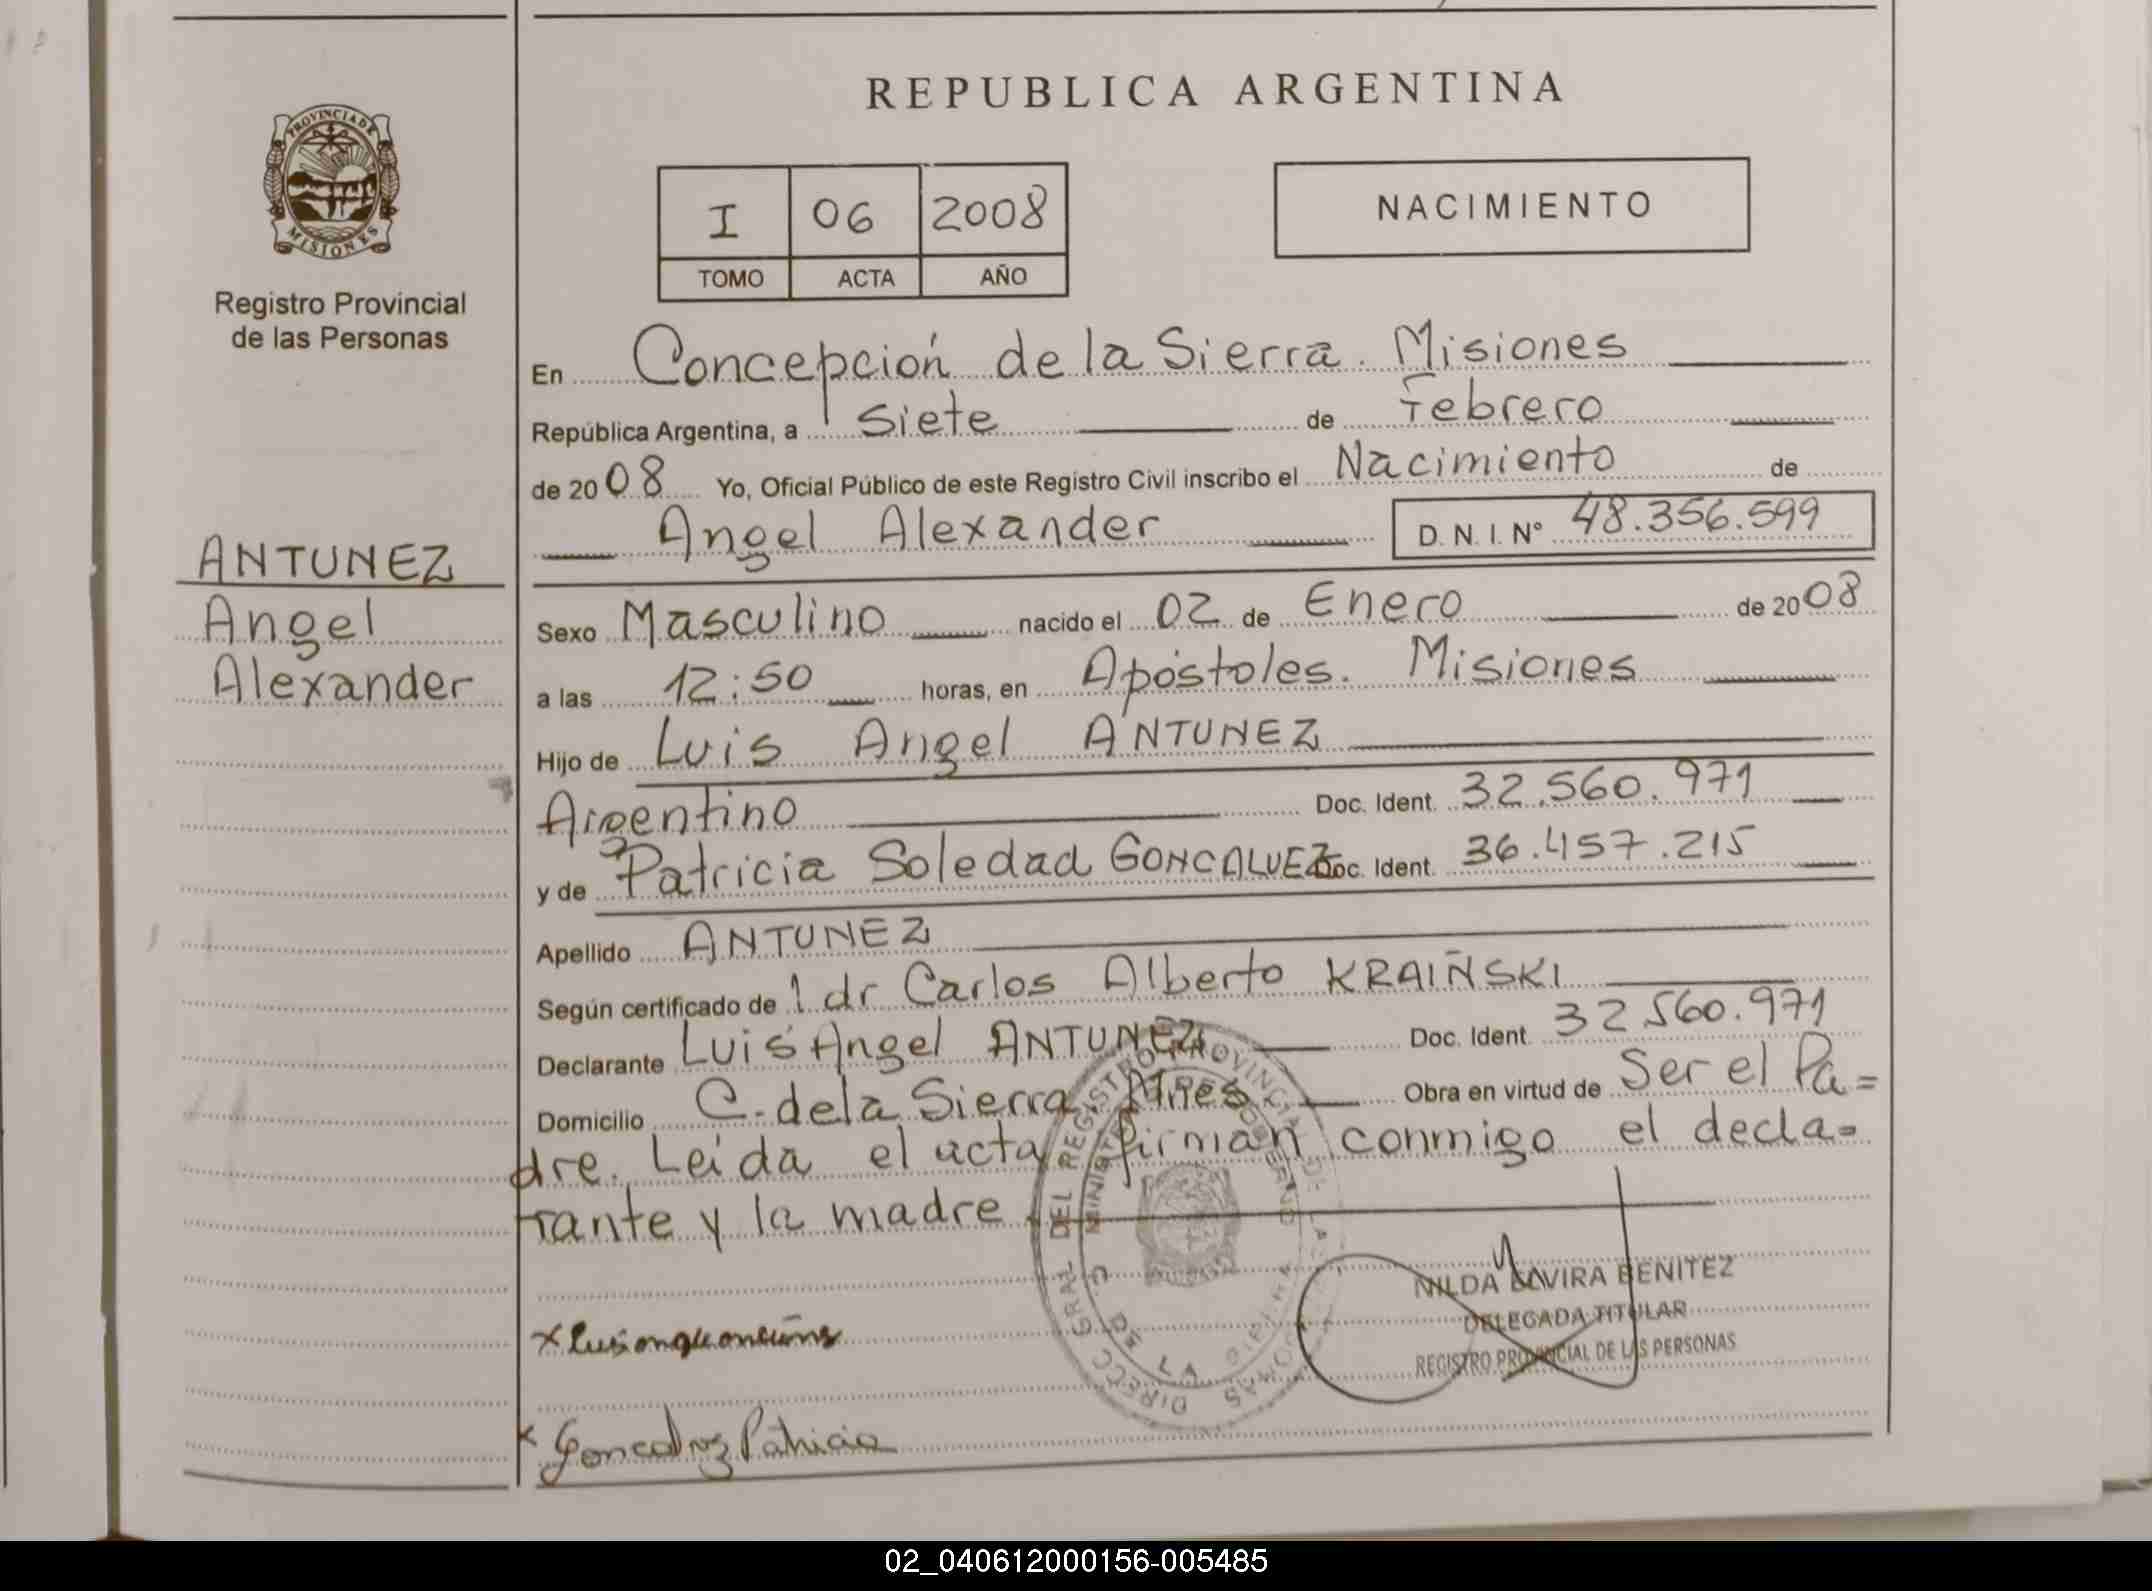 REPUBLICA ARGENTINA
PROVINCIA DE
MISIONES
Registro Provincial
de las Personas
I 06 2008
TOMO ACTA AÑO
NACIMIENTO
En Concepción de la Sierra. Misiones
República Argentina, a siete de Febrero
de 2008 Yo, Oficial Público de este Registro Civil inscribo el Nacimiento de
Angel Alexander D. N. I. Nº 48.356.599
ANTUNEZ
Angel
Alexander
Sexo Masculino nacido el 02 de Enero de 2008
a las 12:50 horas, en Apóstoles. Misiones
Hijo de Luis Angel ANTUNEZ
Argentino Doc. Ident. 32.560.971
y de Patricia Soledad GONCALVEZ Doc. Ident. 36.457.215
Apellido ANTUNEZ
Según certificado de 1 dr Carlos Alberto KRAIÑSKI
Declarante Luis Angel ANTUNEZ Doc. Ident. 32560.971
Domicilio C. de la Sierra. Mnes Obra en virtud de Ser el Pa=
dre. Leída el acta firman conmigo el decla=
rante y la madre
DIREC. GRAL DEL REGISTRO PROVINCIAL DE LAS PERSONAS
MINISTERIO DE GOBIERNO
NILDA ELVIRA BENITEZ
DELEGADA TITULAR
REGISTRO PROVINCIAL DE LAS PERSONAS
x
x Goncalvez Patricia
02_040612000156-005485